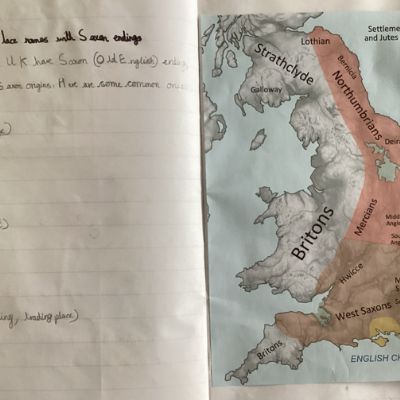 lace names with Saxon endings
UK have Saxon (Old English) ending
Saxon origins. Here are some common ones
ing, trading place)
Settleme
and Jutes
Lothian
Bernicia
Strathclyde
Northumbrians
Galloway
Deira
Britons
Mercians
Midd
Angle
Sou
Ang
Hwicce
West Saxons
Britons
ENGLISH CH